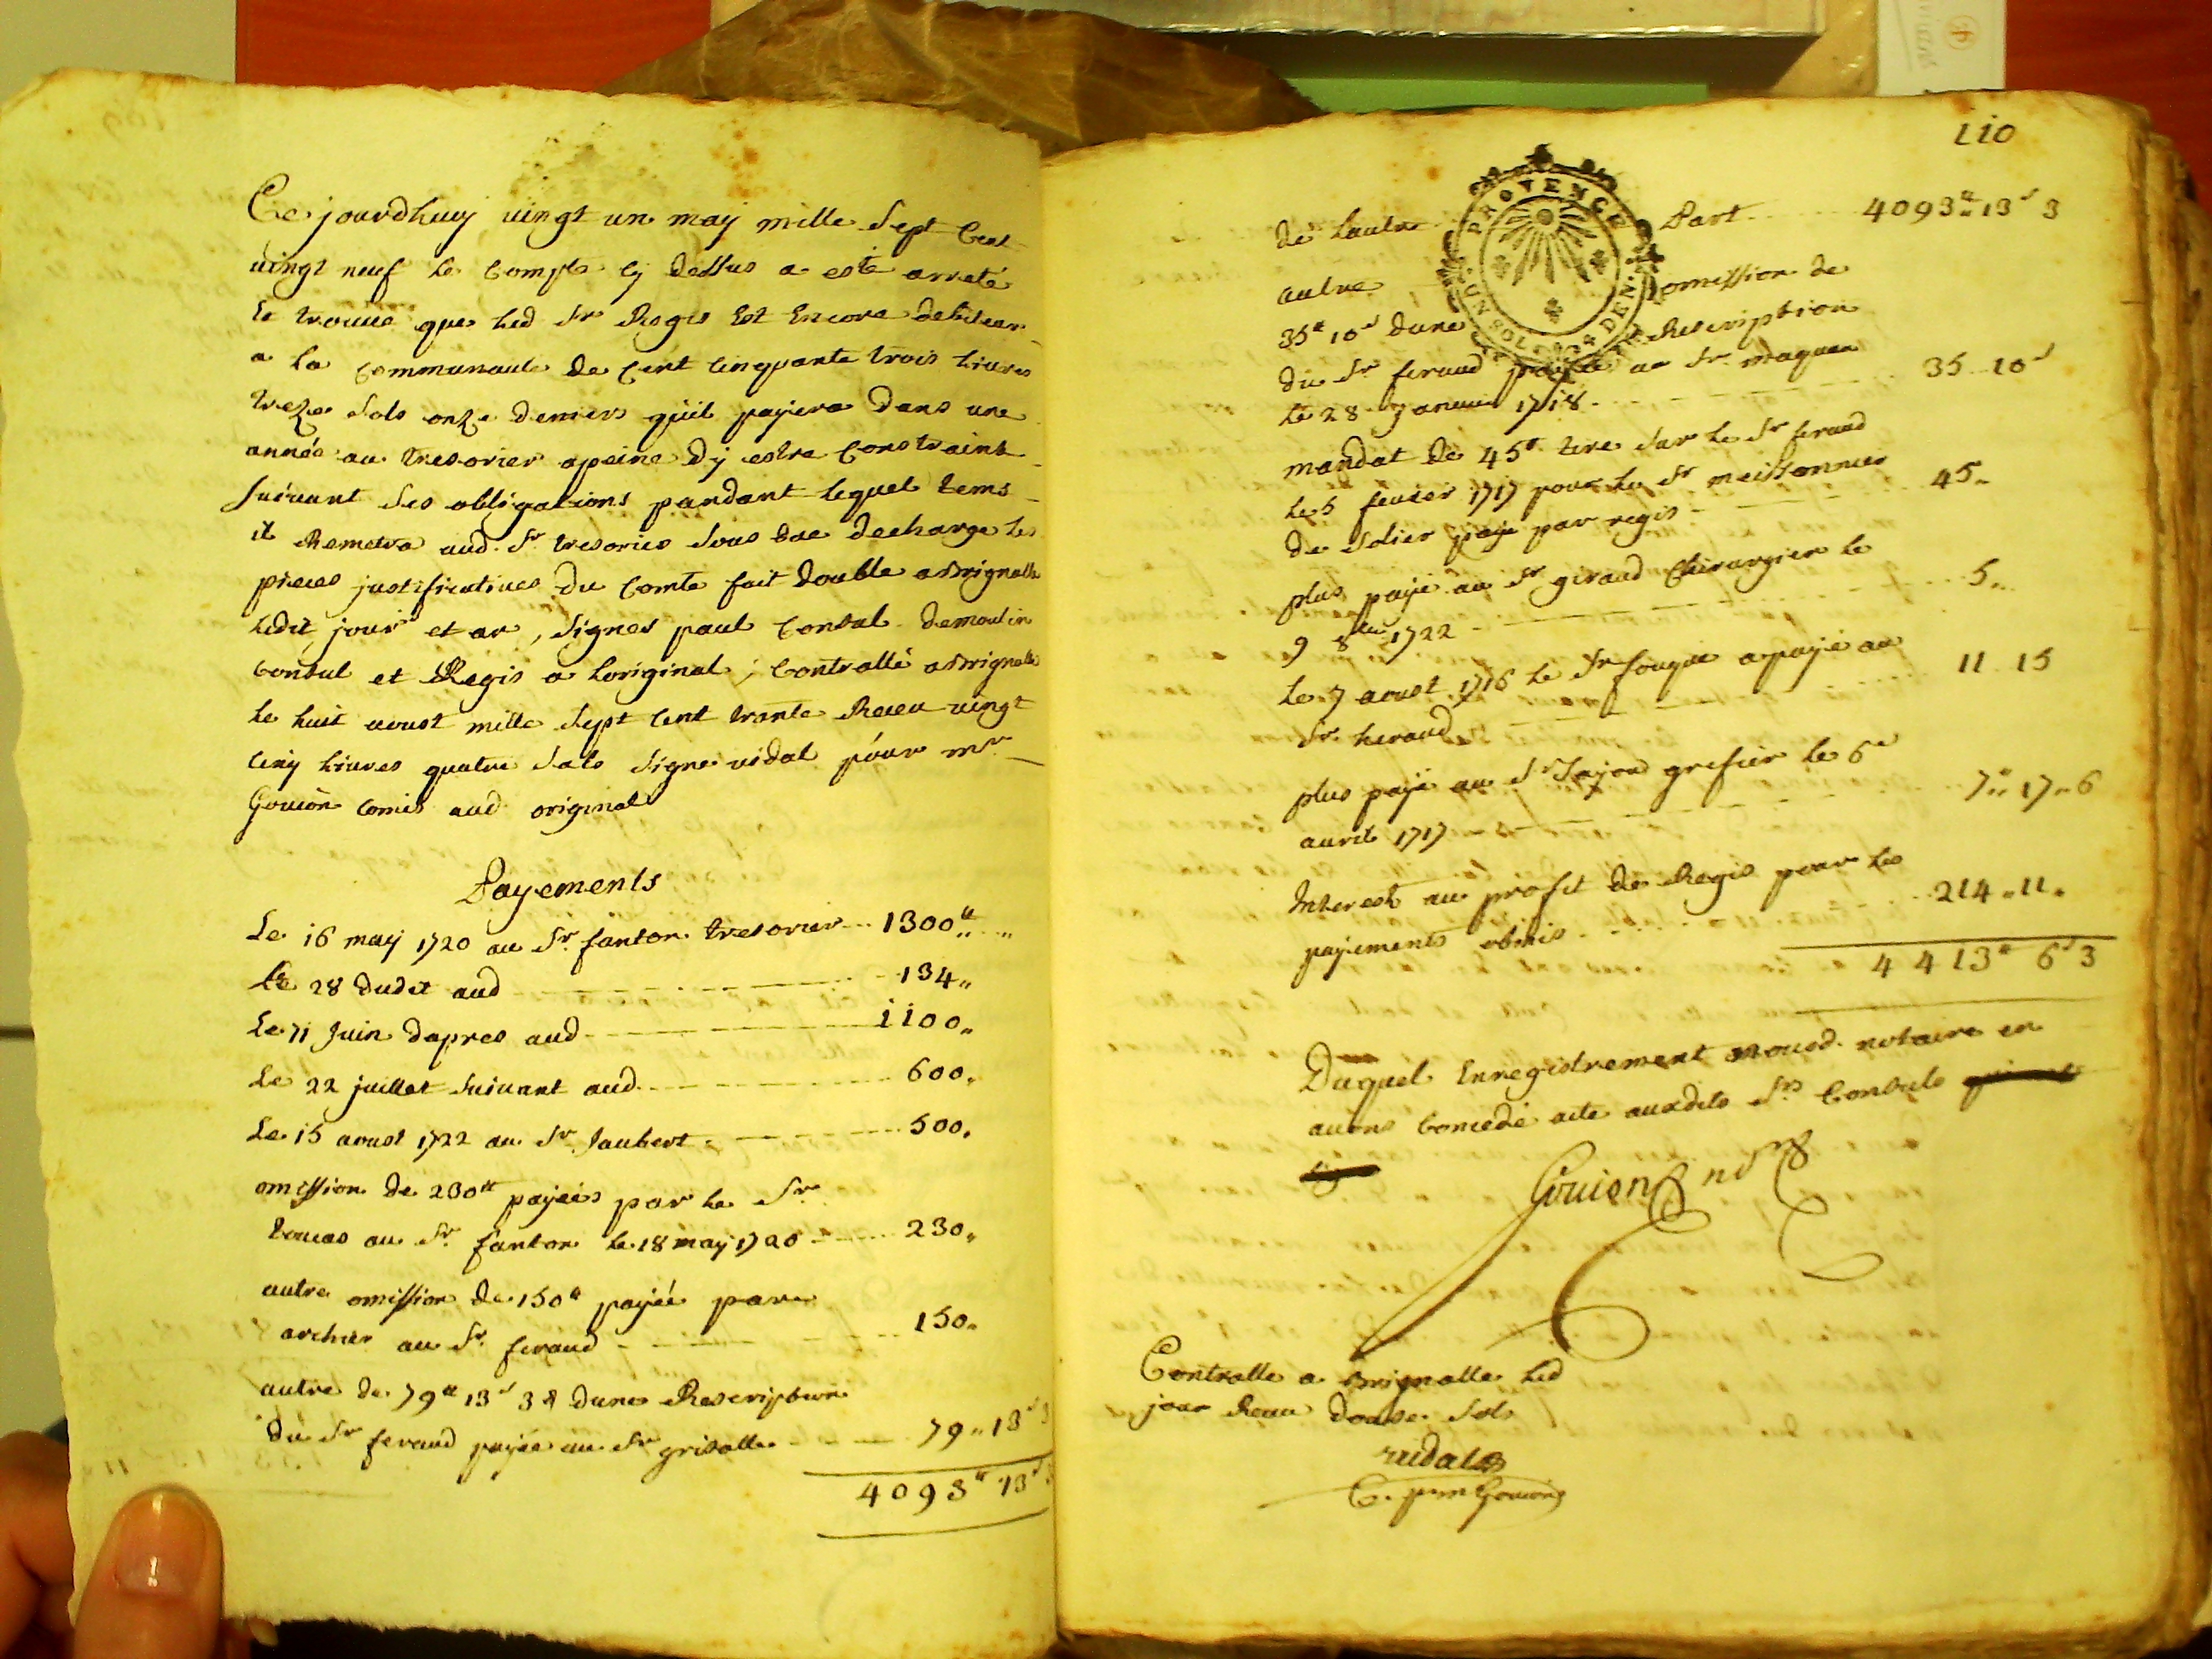 Ce jourdhuy vingt un may mille sept cent
vingt neuf le compte cy dessus a esté arreté
et trouue que led Sr Regis est encore debiteur
a la communaute de cent cinquante trois liures
treze sols onze deniers qu'il payiera dans une
année au tresorier a peine dy estre constraint
suiuant ses obligations pandant lequel tems
il Remetra aud. Sr tresorier sous due decharge les
pieces justificatiues du comte fait double a Brignolle
ledit jour et an, signes paul consul demoulin
consul et Regis a loriginal, controllé a Brignolle
le huit aoust mille sept cent trante Receu vingt
cinq liures quatre sols signe vidal pour mr
Gouion comis aud original
Payements
Le 16 may 1720 au Sr. fanton tresorier 1300tt
le 28 dudit aud 134
Le 11 Juin dapres aud 1100
Le 22 juillet suiuant aud 600
Le 15 aoust 1722 au Sr Jaubert 500
omission de 230tt payées par le Sr
toucas au Sr. fanton le 18 may 1720 230
autre omission de 150tt payée par
archier au Sr. feraud 150
autre de 79tt 13s 3d dune Rescription
du Sr feraud payée au Sr grisolle 79 13s 3
4093tt 13s
110
PROVENCE
UN SOL DEN.
de lautre Part 4093tt 13s 3
autre omission de
35tt 10s dune Rescription
du Sr feraud payée au Sr maquan
le 28 Januier 1718 35 10s
mandat de 45tt tire sur le Sr feraud
le 5 feurier 1717 pour le Sr meissonnier
de solier payé par regis 45
plus payé au Sr giraud Chirurgien le
9 8bre 1722 5
le 7 aoust 1716 le Sr fouque a payé au
Sr. heraud 11 15
plus payé au Sr Sajou grefier le 6e
auril 1717 7 17 6
Interest au profit de Regis pour les
payements obmis 214 11
4413tt 6s 3
Duquel Enregistrement nousd. notaire en
auons concédé acte auxdits Srs Consuls
Gouion nore
Controlle a Brignolle led
jour Receu douse sols
vidal
C. pr mr Gouion